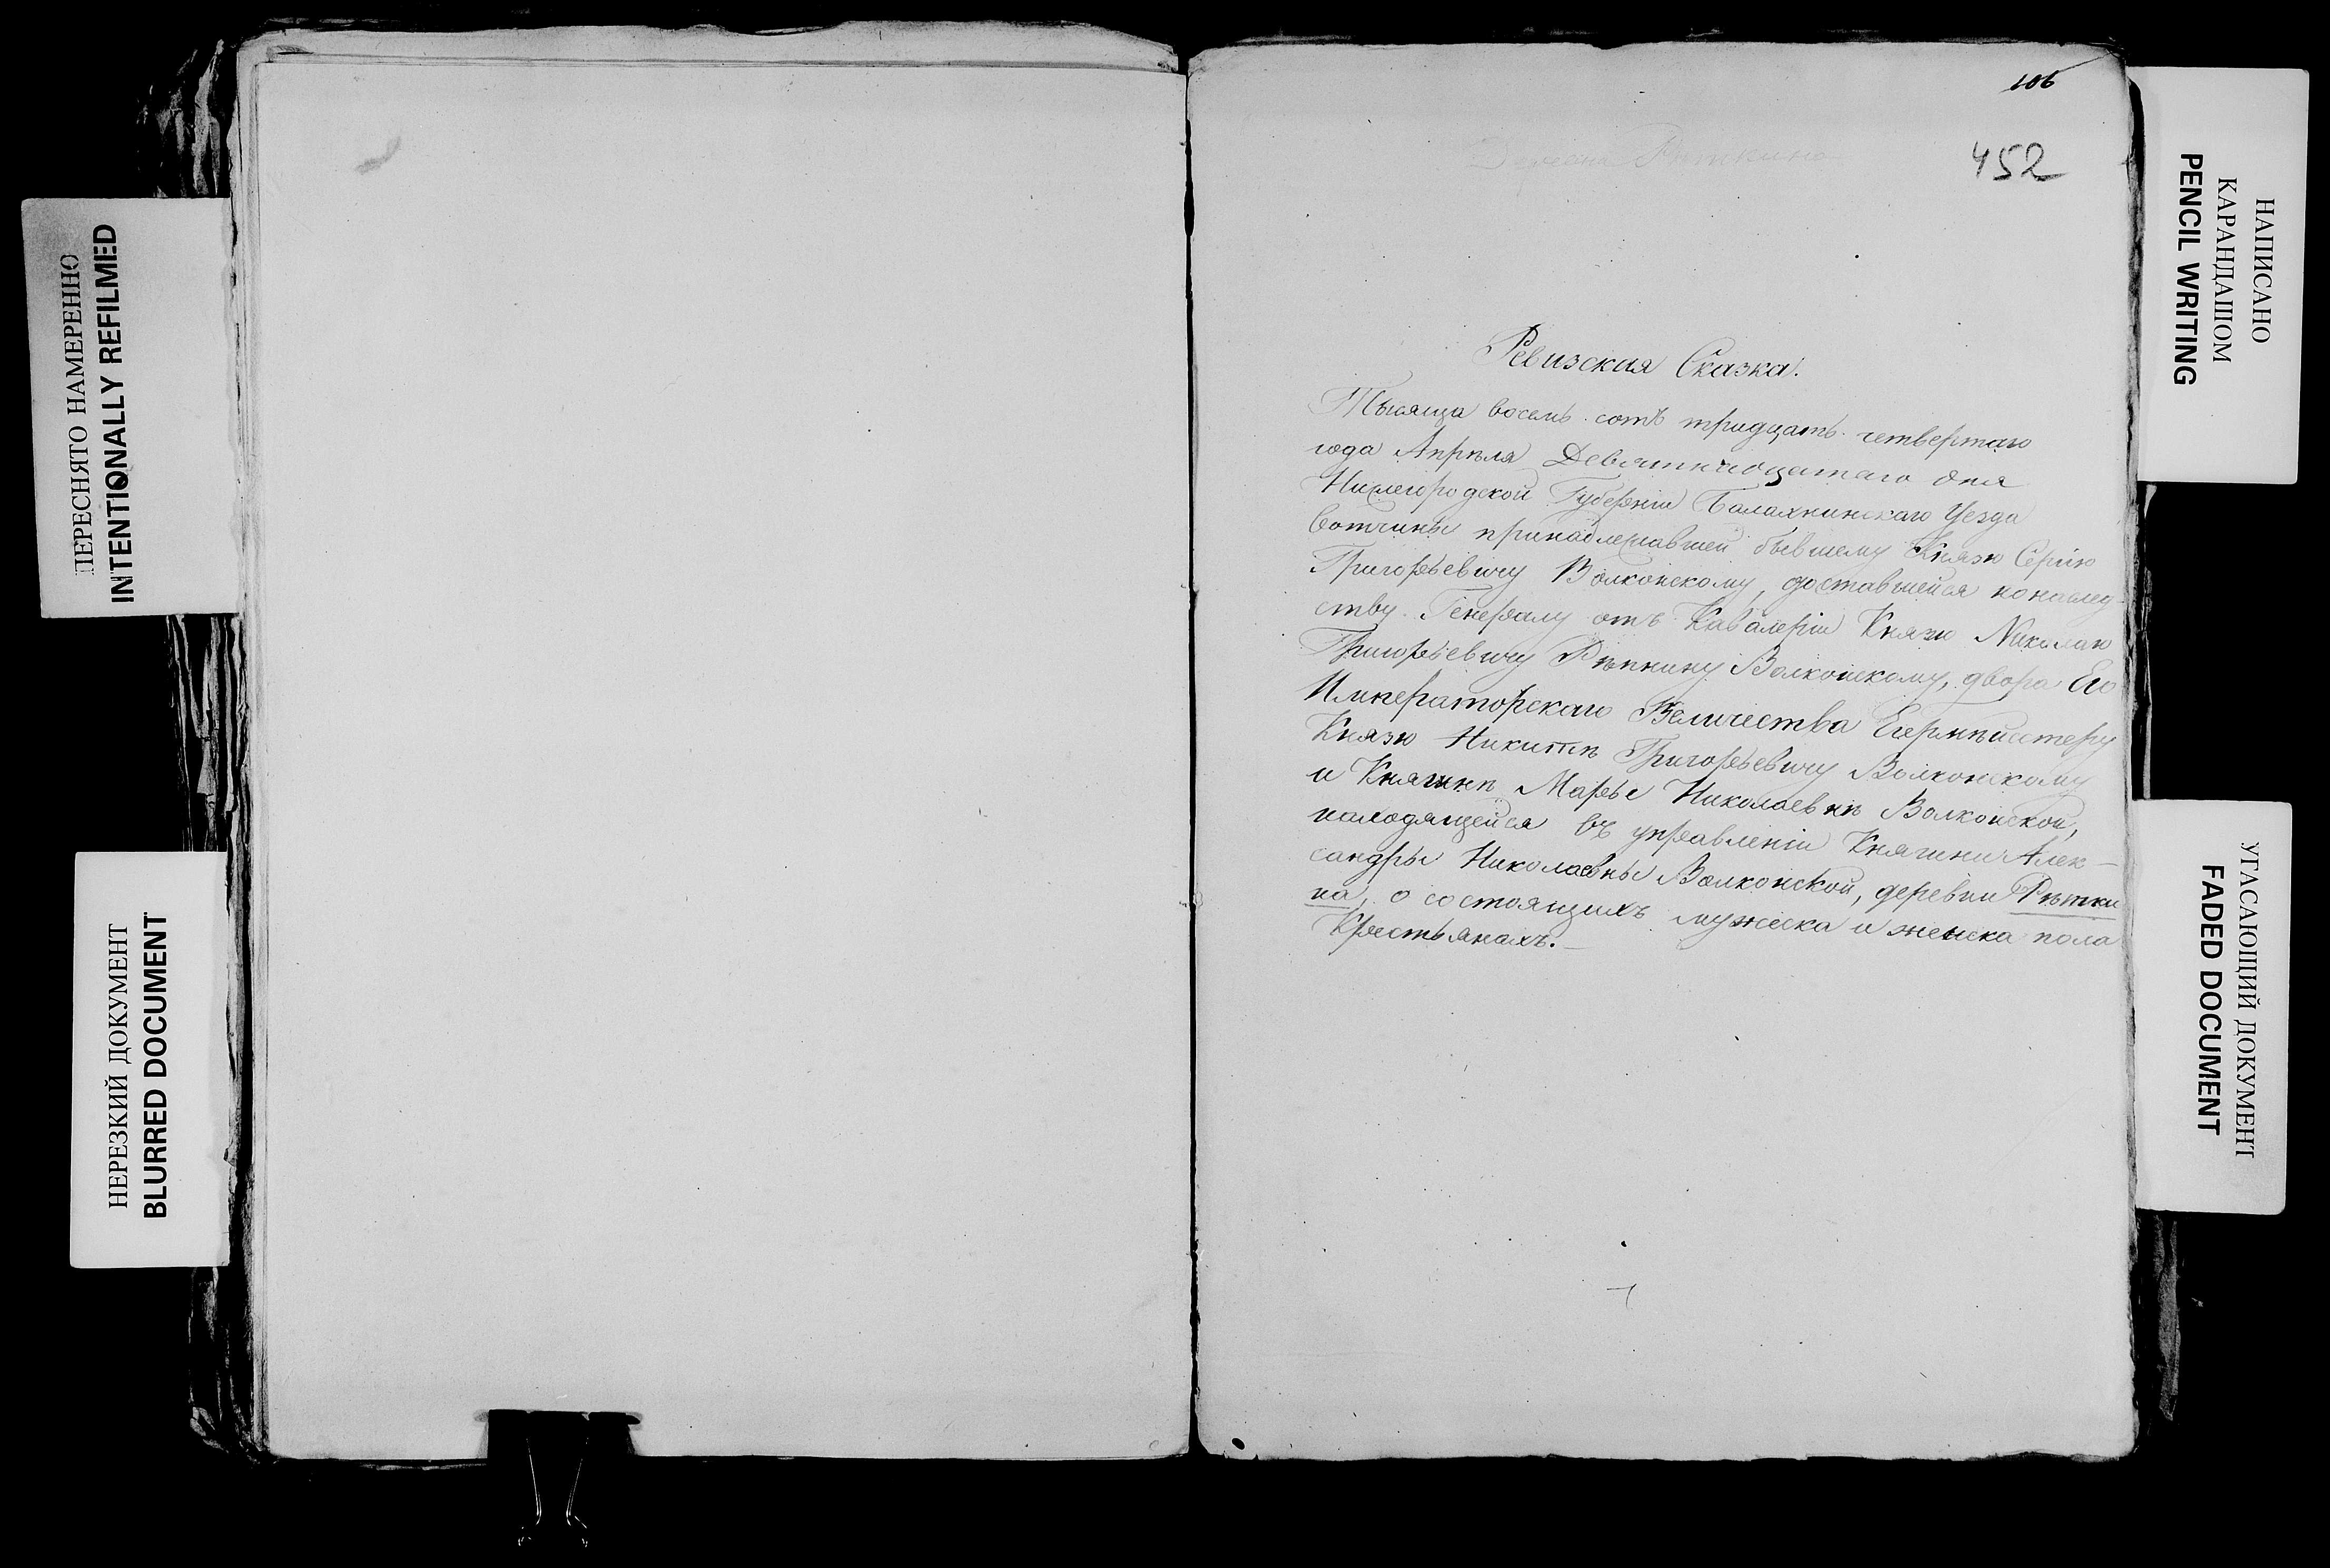 ПЕРЕСНЯТО НАМЕРЕННО
INTENTIONALLY REFILMED
НЕРЕЗКИЙ ДОКУМЕНТ
BLURRED DOCUMENT
106
452
Ревизская Сказка.
Тысяща восемь сотъ тридцать четвертаго
года Апрѣля Девятнадцатаго дня
Нижегородской Губерніи Балахнинскаго Уезда
вотчины принадлежавшей бывшему Князю Сергію
Григорьевичу Волконскому, доставшейся понаслед-
ству Генералу отъ Кавалеріи Князю Николаю
Григорьевичу Рѣпнину Волконскому, двора Его
Императорскаго Величества Егермѣйстеру
Князю Никитѣ Григорьевичу Волконскому
и Княгинѣ Марье Николаевнѣ Волконской,
находящейся въ управленіи Княгини Алек-
сандры Николаевны Волконской, деревни Рѣтки
на, о состоящихъ мужеска и женска пола
Крестьянахъ.
НАПИСАНО
КАРАНДАШОМ
PENCIL WRITING
УГАСАЮЩИЙ ДОКУМЕНТ
FADED DOCUMENT